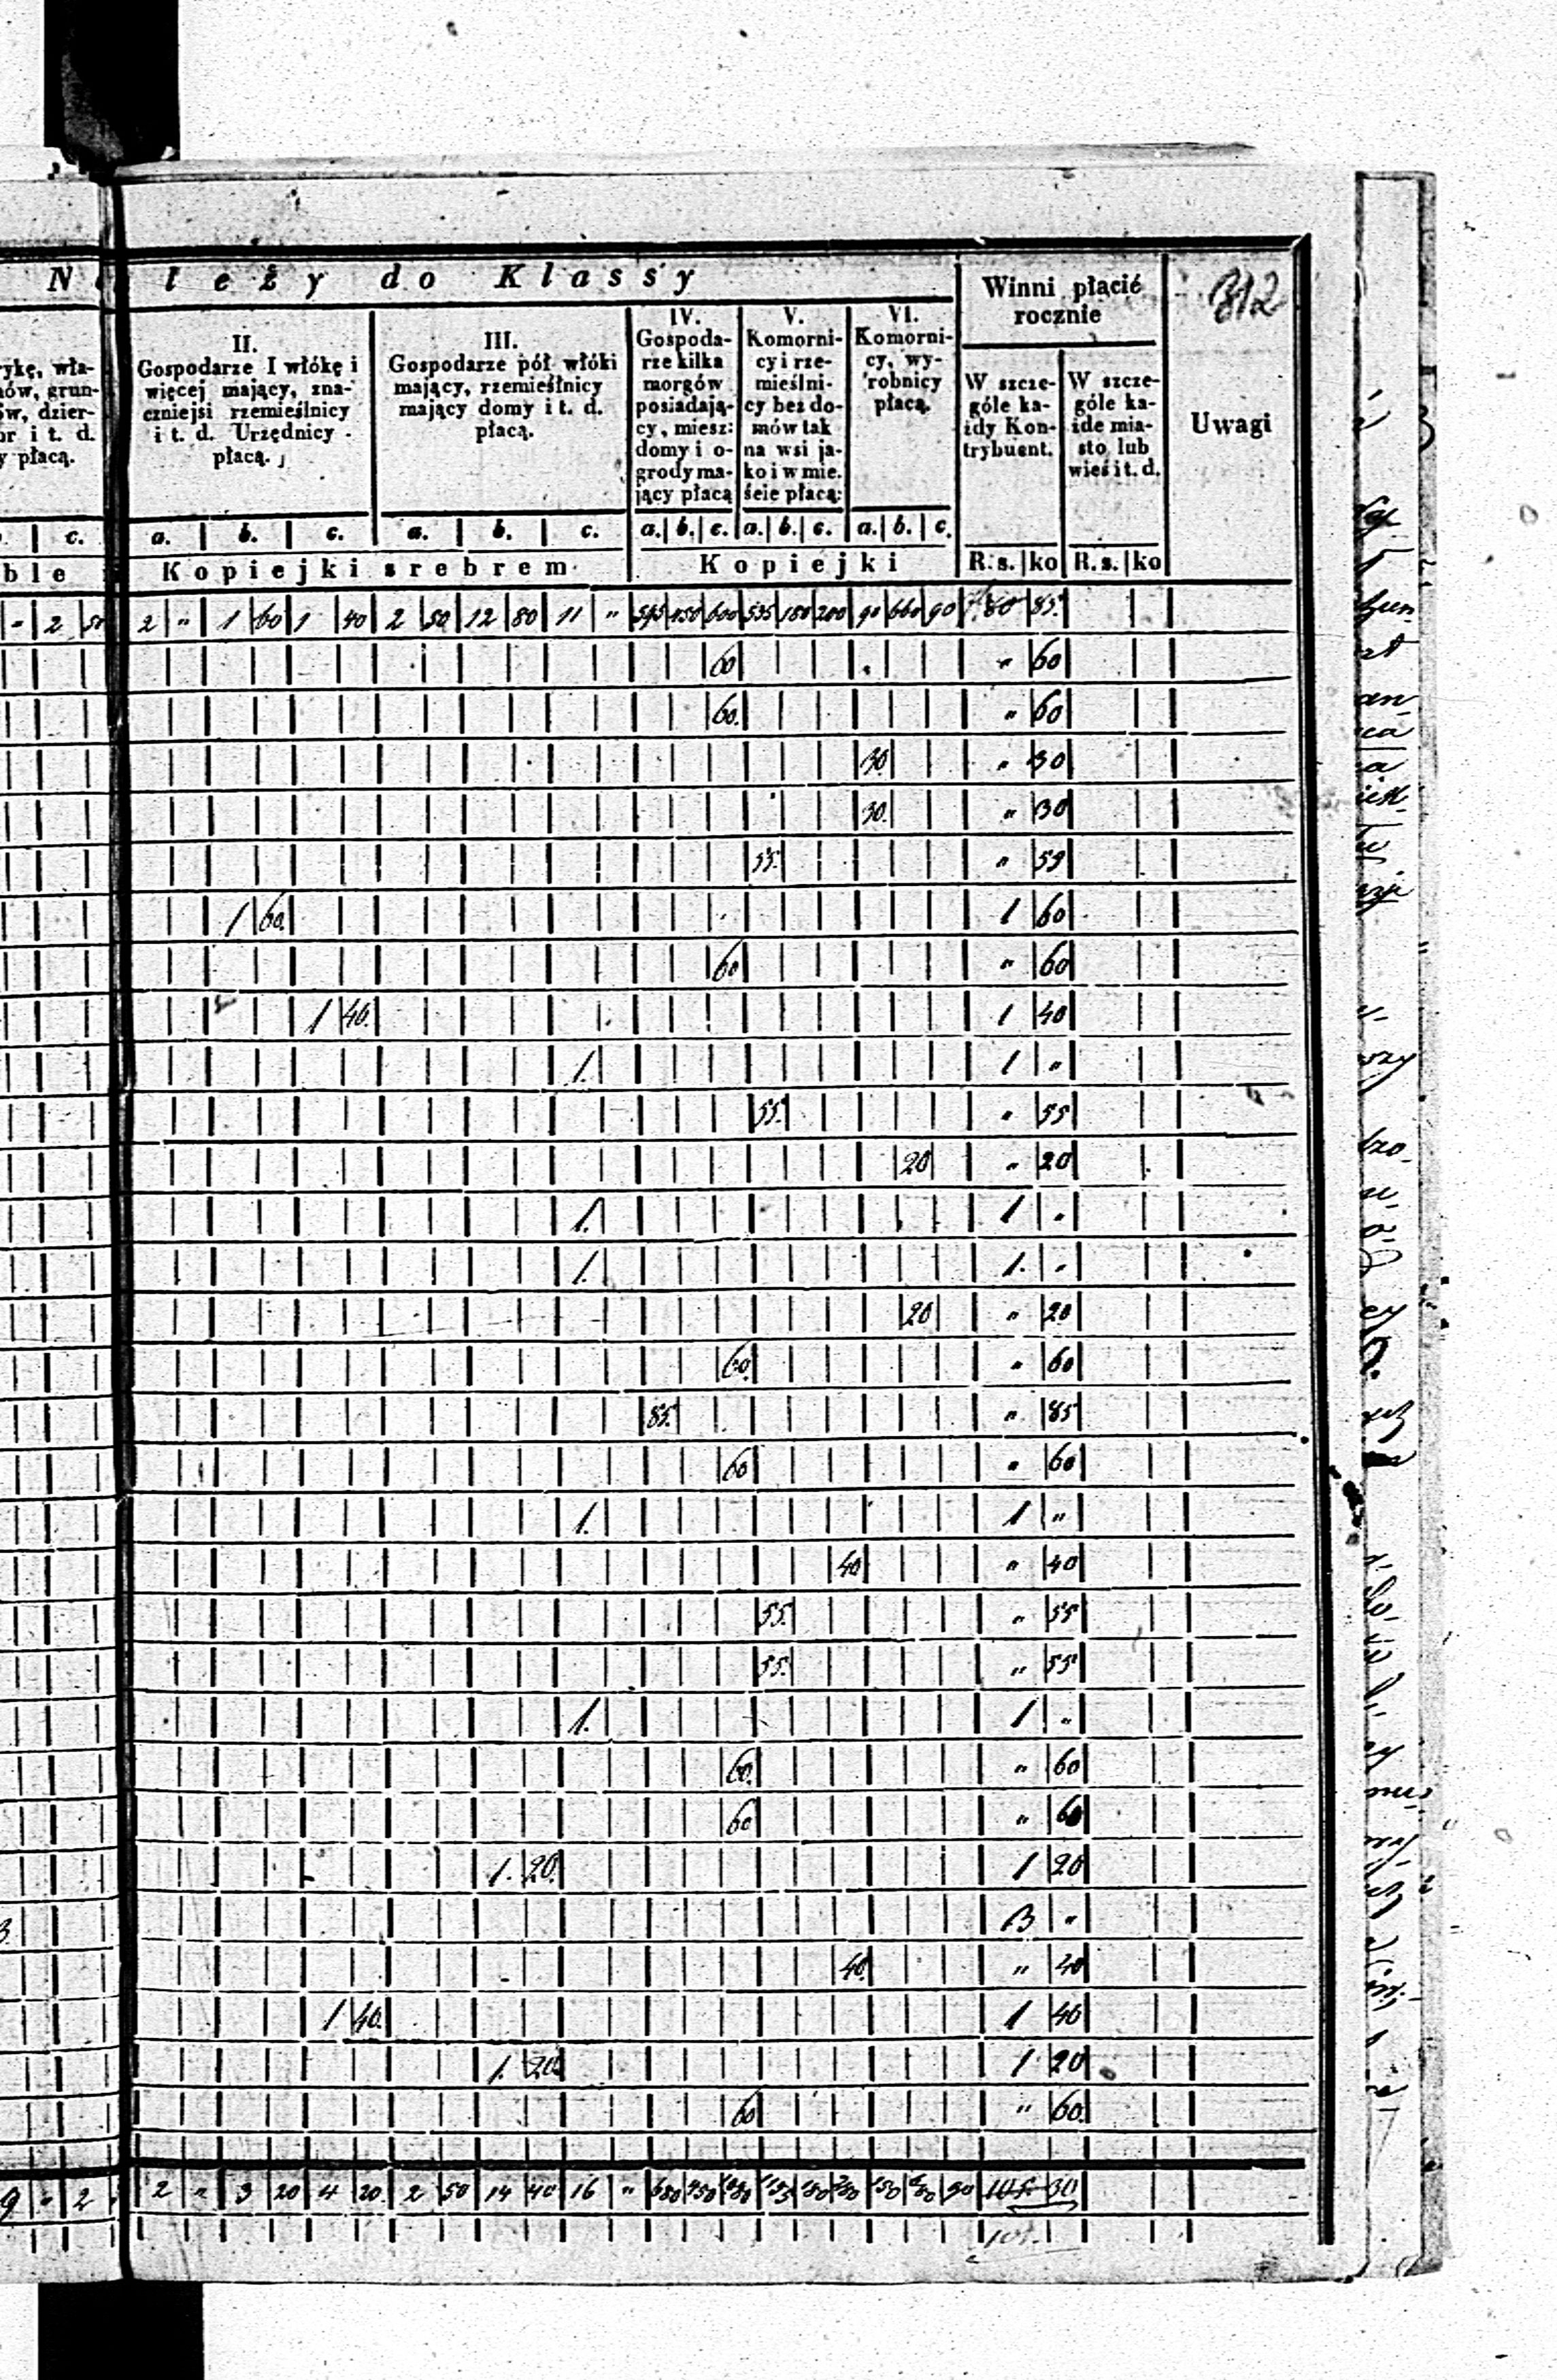 N leży do Klassy
Winni płacić rocznie
312
rykę, wła-
ów, grun-
w, dzier-
or i t. d.
y płacą.
II. Gospodarze I włókę i więcej mający, zna-czniejsi rzemieślnicy i t. d. Urzędnicy płacą.
III. Gospodarze pół włóki mający, rzemieślnicy mający domy i t. d. płacą.
IV. Gospoda-rze kilka morgów posiadają-cy, miesz: domy i o-grody ma-jący płacą
V. Komorni-cy i rze-mieślni-cy bez do-mów tak na wsi ja-ko i w mie. ście płacą:
VI. Komorni-cy, wy-robnicy płacą.
W szcze-góle ka-żdy Kon-trybuent.
W szcze-góle ka-żde mia-sto lub wieś i t. d.
Uwagi
c. a. b. c. a. b. c. a. b. c. a. b. c. a. b. c.
ble Kopiejki srebrem Kopiejki R. s. ko R. s. ko
" 2 50 2 " 1 60 1 40 2 50 12 80 11 " 600 180 200 90 660 90 80 85
60 " 60
60. " 60
30 " 30
30. " 30
55. " 55
1 60. 1 60
60 " 60
1 40. 1 40
1. 1 "
55. " 55
20 " 20
1. 1 "
1. 1. "
20 " 20
60. " 60
85. " 85
60 " 60
1. 1 "
40 " 40
55. " 55
55. " 55
1. 1 "
60. " 60
60 " 60
1. 20. 1 20
3 3 "
40. " 40
1 40. 1 40
1. 20. 1 20
60 " 60.
9 " 2 2 " 3 20 4 20. 2 50 14 40 16 " 680 90 30
105.